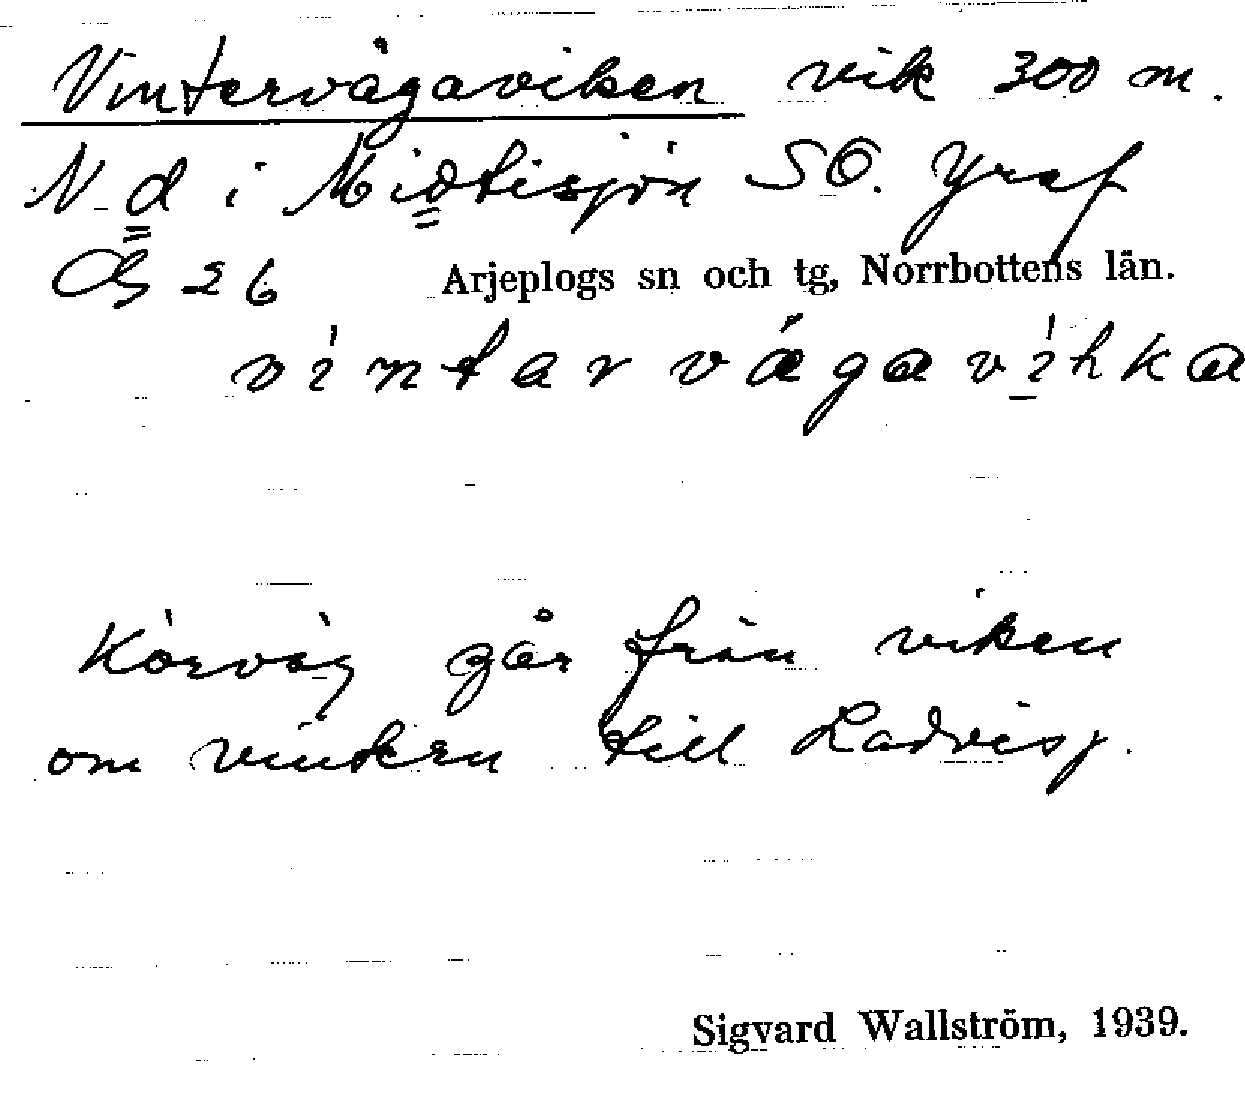 Vintervägaviken vik 300 m.
N d i Midtisjön SO.
26 Arjeplogs sn och tg, Norrbottens län.
víntar vægavíhka
Körväg går från viken
om vintern till Ladvisj.
Sigvard Wallström, 1939.